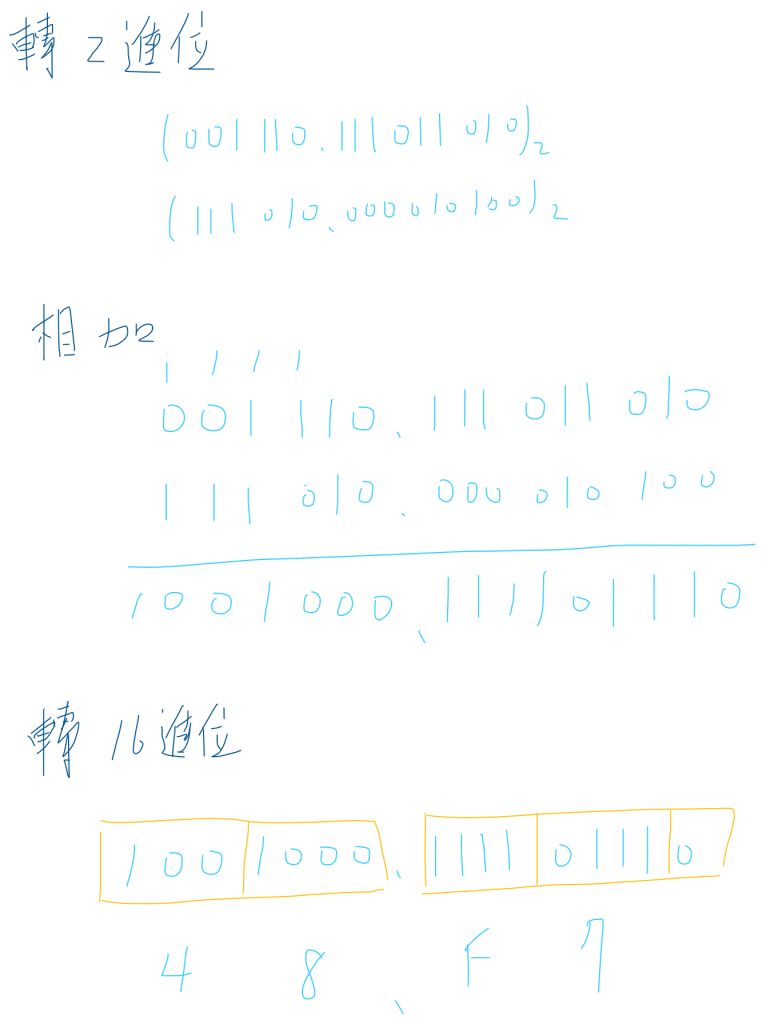 轉2進位
(001 110.111 011 010)2
(111 010.000 010 100)2
相加
1 1 1 1
001 110.111 011 010
111 010.000 010 100
1001000.111101110
轉16進位
100 1000.1111 0111 0
4 8.F 7